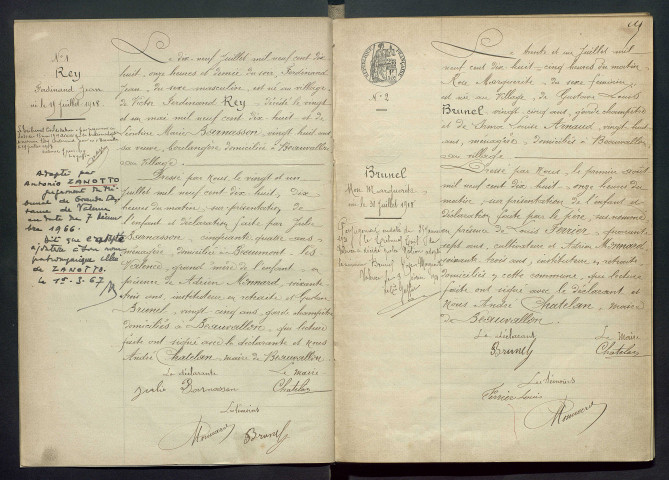 N° 1
Rey
Ferdinand Jean
né le 19 juillet 1918
Adopté par
Antonio ZANOTTO
jugement du Tri-
bunal de Grande Ins-
tance de Valence
en date du 7 décem
bre 1966.
Dit que l'adopté
ajoutera à son nom
patronymique celui
de ZANOTTO.
le 1er.3.67
Le dix-neuf juillet mil neuf cent dix
huit, onze heures et demie du soir, Ferdinand
Jean, du sexe masculin, est né au village,
de Victor Ferdinand Rey, décédé le vingt
et un mai mil neuf cent dix huit et de
Marie Bernasson, vingt huit ans
sa veuve, boulangère domiciliée à Beauvallon
au village.
Dressé par nous le vingt et un
juillet mil neuf cent dix huit, dix
heures du matin, sur présentation de
l'enfant et déclaration faite par Julie
Bernasson, cinquante quatre ans
ménagère, domiciliée à Beaumont-les
Valence, grand'mère de l'enfant, en
présence de Adrien Monnard, soixante
trois ans, instituteur en retraite et Gustave
Brunel, vingt cinq ans, garde champêtre
domiciliés à Beauvallon, qui lecture
faite ont signé avec la déclarante et nous
André Chatelan, maire de Beauvallon.
La déclarante Le maire
Julie Bernasson Chatelan
Les témoins
Monnard Brunel
N° 2
Brunel
Marguerite
née le 31 juillet 1918
Le trente et un juillet mil
neuf cent dix huit, cinq heures du matin
Marguerite, du sexe féminin,
est née au village, de Gustave Louis
Brunel, vingt cinq ans, garde champêtre
et de Louise Arnaud, vingt huit
ans, ménagère, domiciliés à Beauvallon,
au village.
Dressé par nous, le premier août
mil neuf cent dix huit, onze heures du
matin, sur présentation de l'enfant et
déclaration faite par le père, susnommé
en présence de Louis Ferrier, quarante
sept ans, cultivateur et Adrien Monnard,
soixante trois ans, instituteur en retraite
domiciliés en cette commune, qui lecture
faite ont signé avec le déclarant et
nous André Chatelan, maire
de Beauvallon.
Le déclarant Le maire
Brunel Chatelan
Les témoins
Ferrier Louis
Monnard